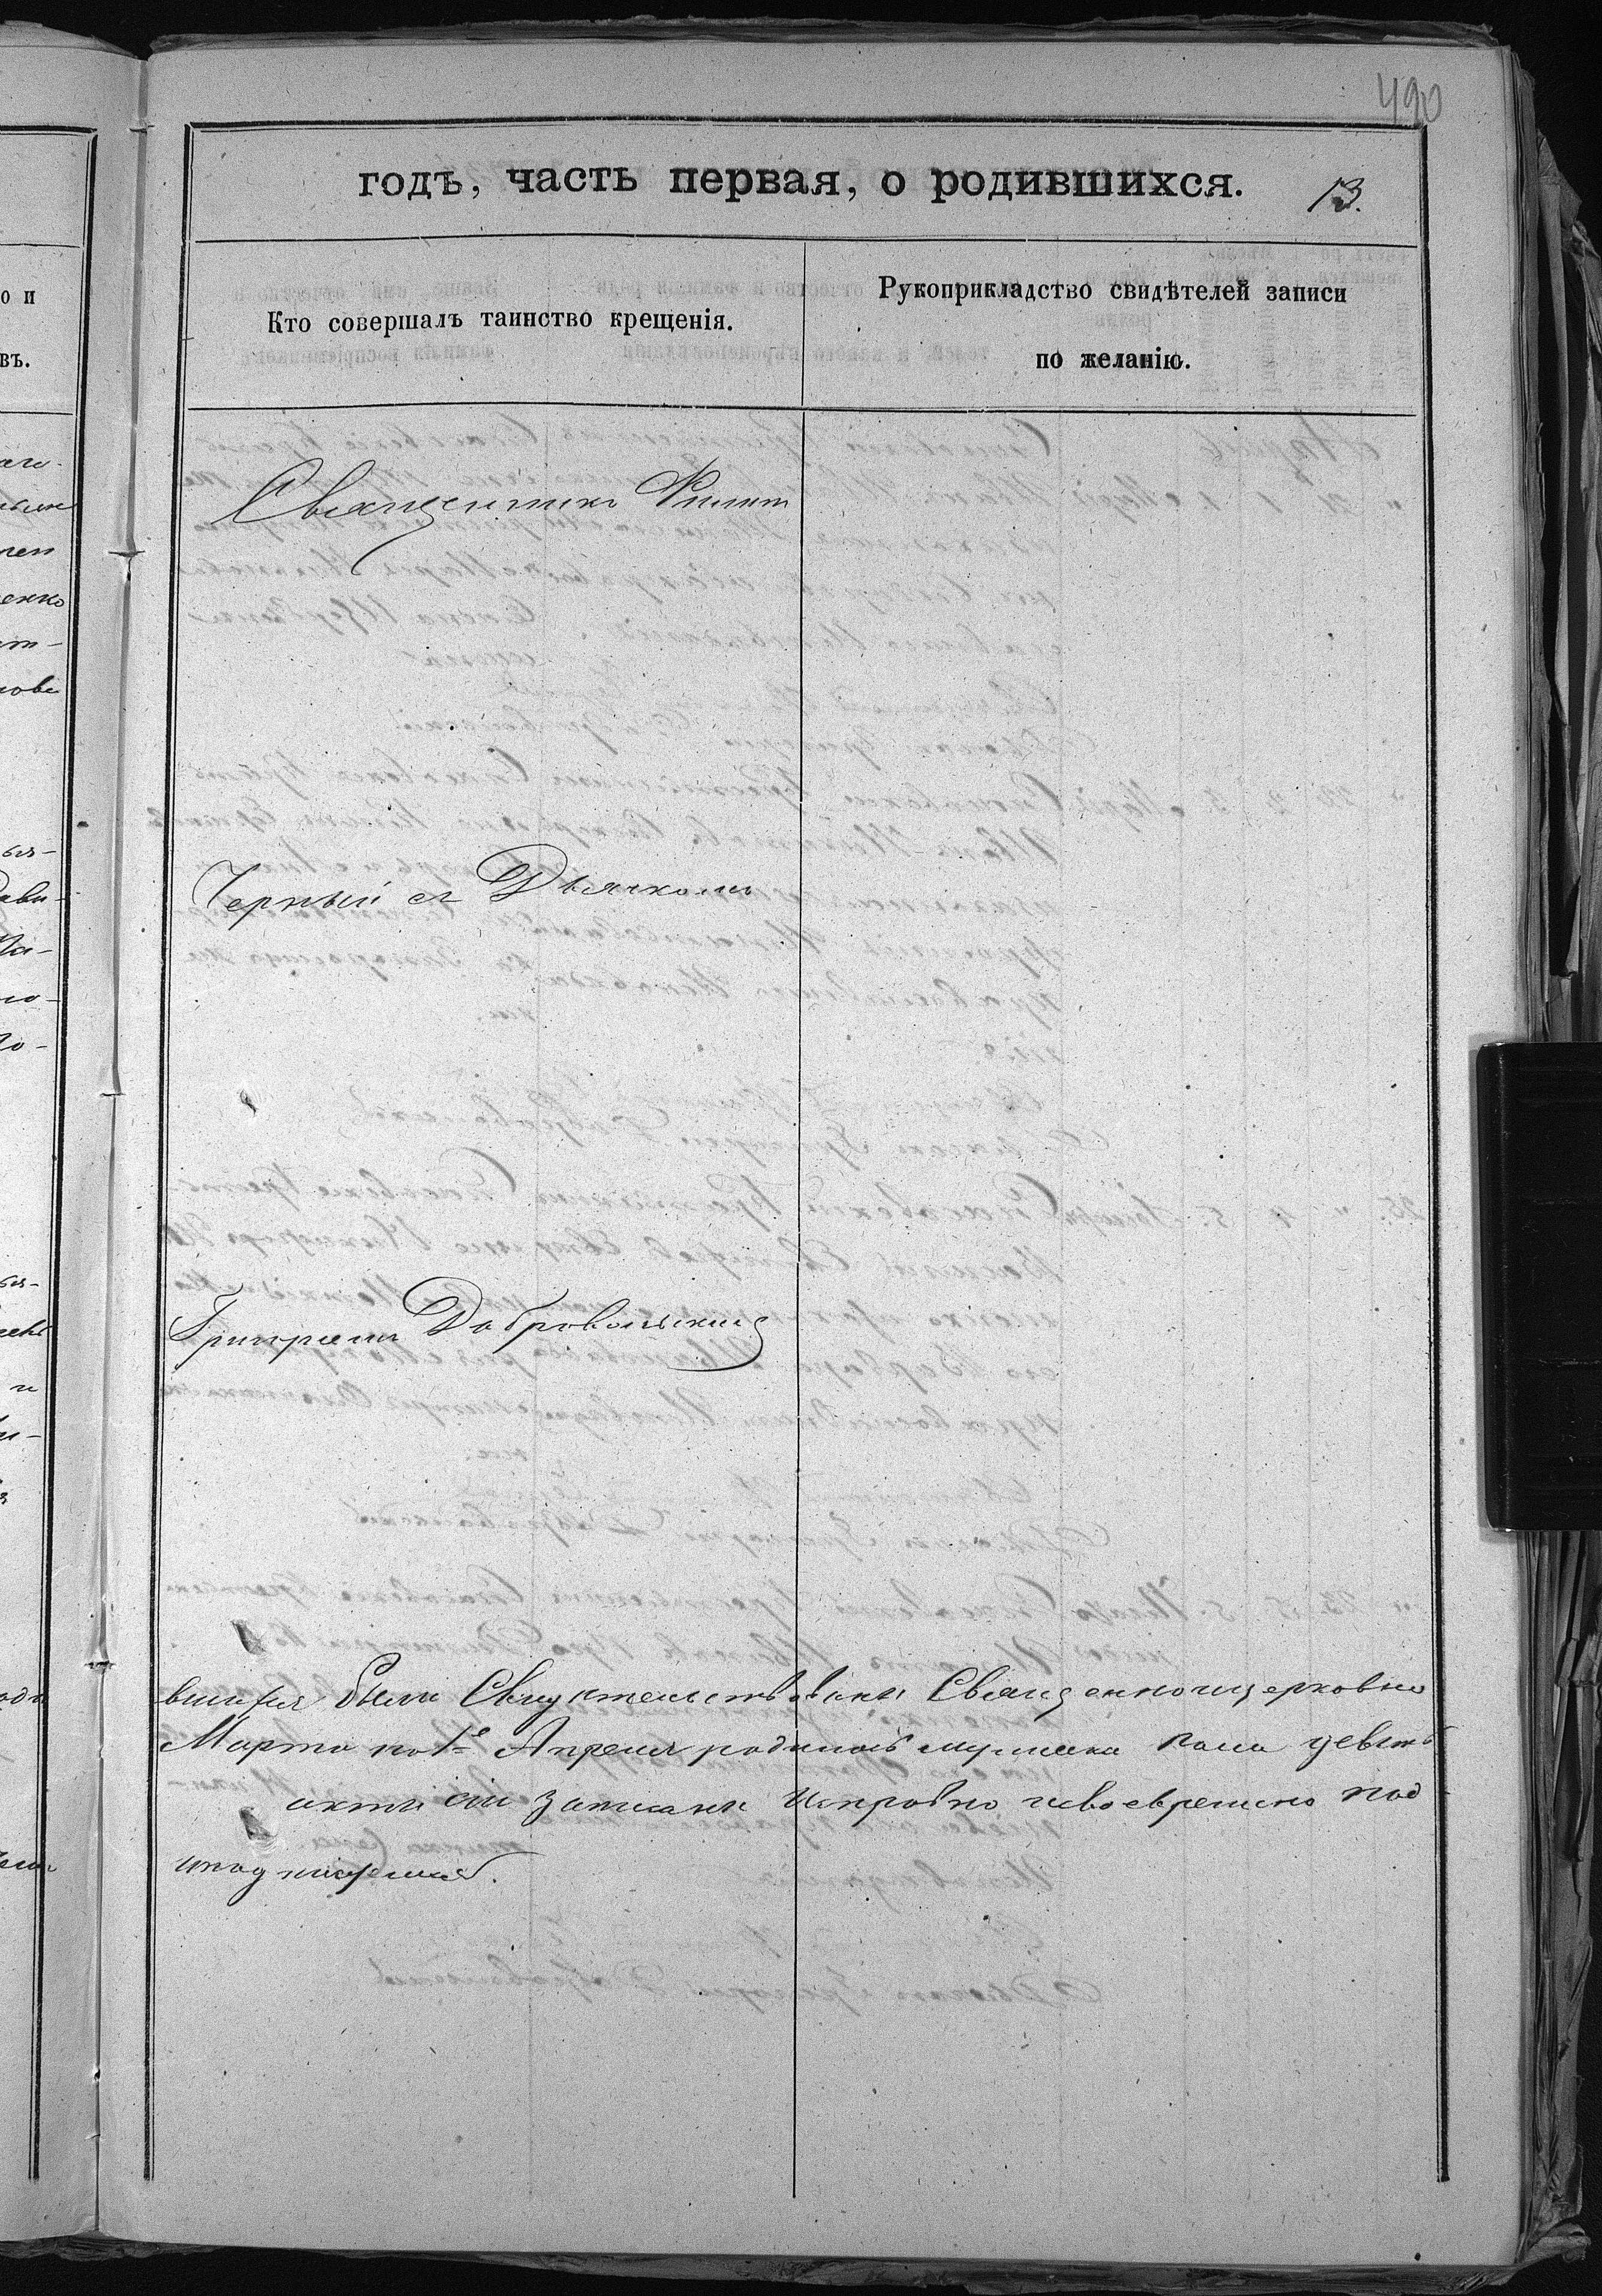 490
годъ, часть первая, о родившихся. 13.
Кто совершалъ таинство крещенія.
Рукоприкладство свидѣтелей записи
по желанію.
Священникъ Филип
Черный съ Дьячкомъ
Григоріемъ Добровольскимъ
вшихся были Свидѣтельствованы Священноцерковно
Марта по 1е Апреля родилось мужеска пола девять
акты сіи записаны Исправно исвоевремено под
иподписуемся.